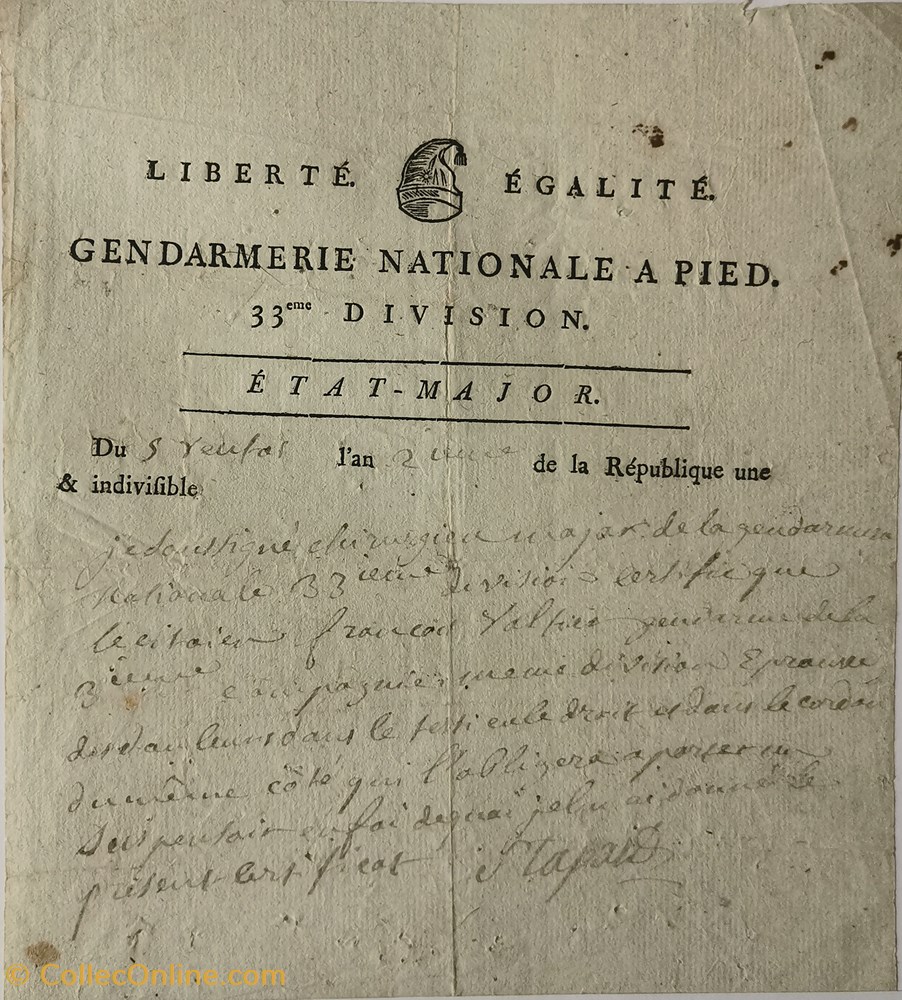 LIBERTÉ. ÉGALITÉ.
GENDARMERIE NATIONALE A PIED.
33eme DIVISION.
ÉTAT-MAJOR.
Du 5 Ventos l'an 2 ieme de la République une
& indiviſible
je soussigné chirurgien major de la gendarmerie
nationale 33 ieme division certifie que
le citoien françois gendarme de la
3 ieme compagnie meme division Eprouve
des douleurs dans le testicule droit et dans le cordon
du même côté qui l'obligera a porter un
Suspensoir en foi de quoi je lui ai donné le
présent certificat
© CollecOnline.com